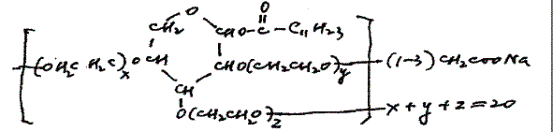 O
O
CH2 CHO-C-C11H23
(OH2C H2C)x OCH CHO(CH2CH2O)y (1-3) CH2COONa
CH
O(CH2CH2O)z x+y+z=20